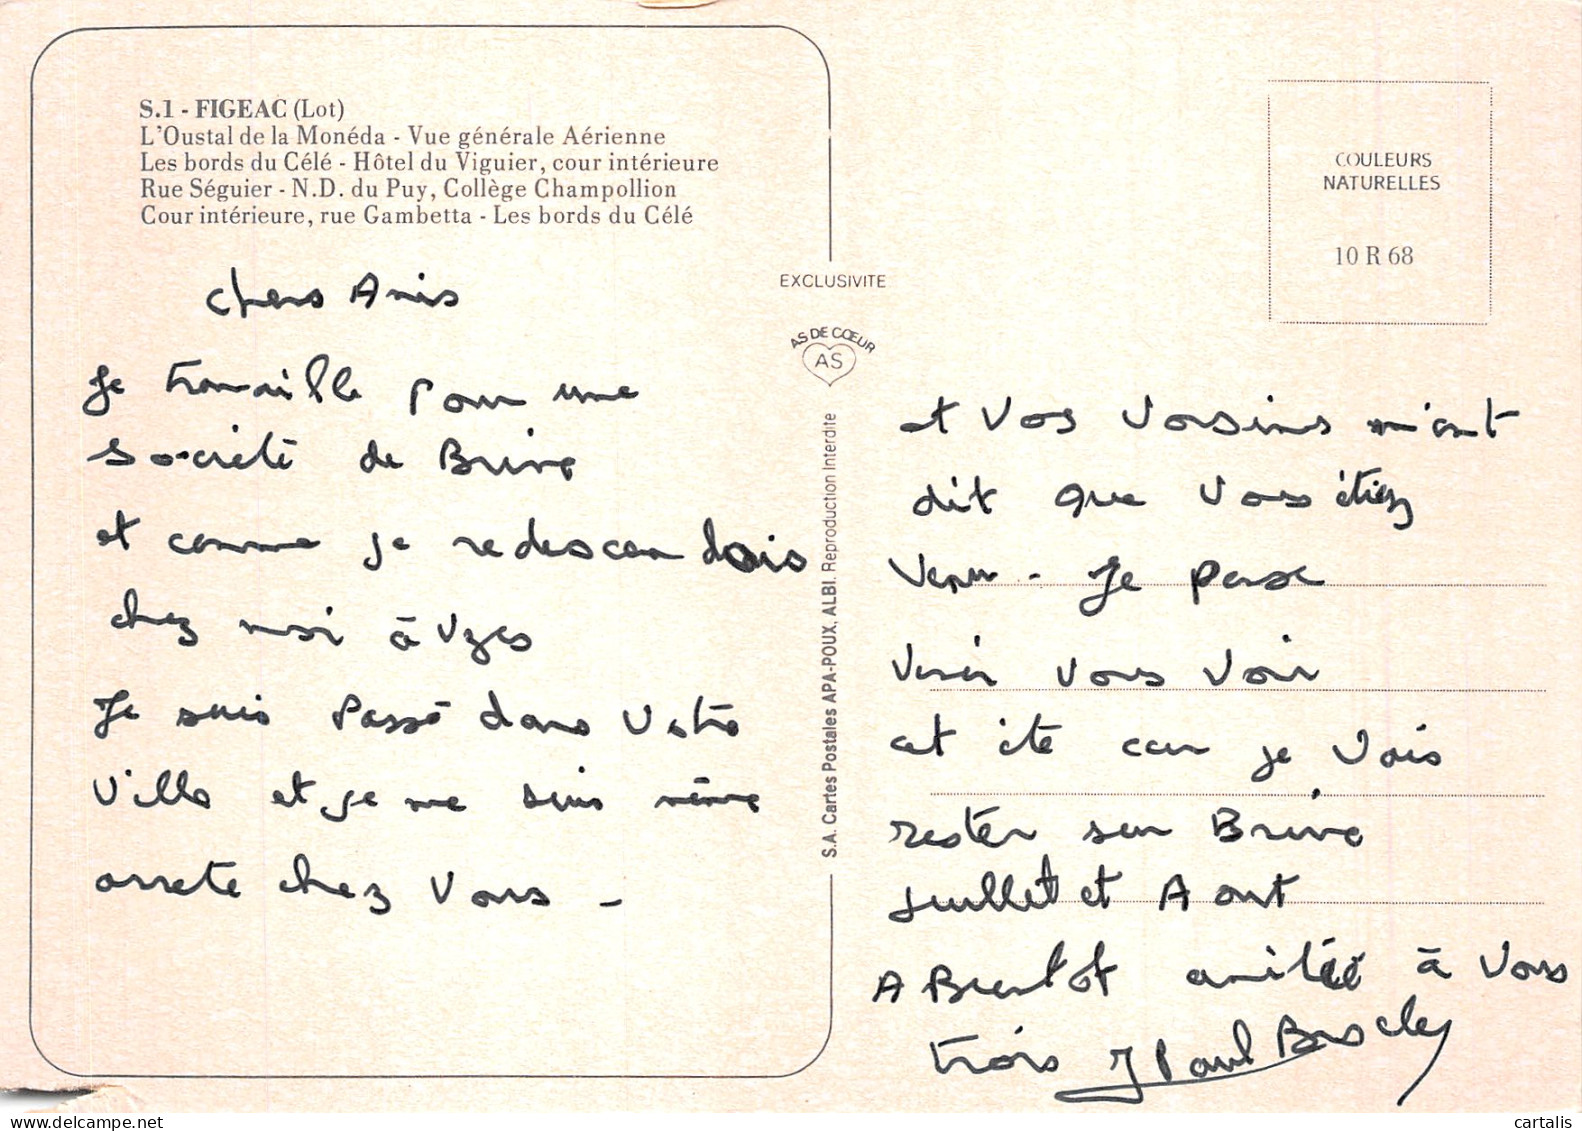 S.1 - FIGEAC (Lot)
L'Oustal de la Monéda - Vue générale Aérienne
Les bords du Célé - Hôtel du Viguier, cour intérieure
Rue Séguier - N.D. du Puy, Collège Champollion
Cour intérieure, rue Gambetta - Les bords du Célé
chers Amis
Je travaille pour une
société de Brive
et comme je redescendais
chez moi à Uzes
Je suis passé dans Votre
Ville et je me suis même
arrete chez Vous -
EXCLUSIVITE
AS DE CŒUR
AS
S.A. Cartes Postales APA-POUX, ALBI. Reproduction Interdite
COULEURS
NATURELLES
10 R 68
et Vos Voisins m'ont
dit que Vous étiez
Venu - Je pense
Venir Vous Voir
cet été car je Vais
rester sur Brive
Juillet et Aout
A Bientot amitié à Vous
trois J Paul
cartalis
www.delcampe.net